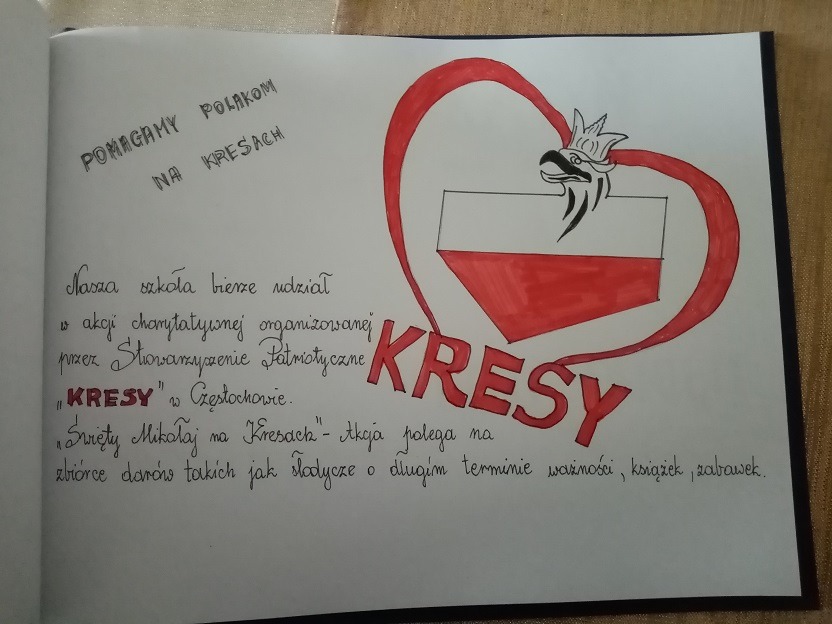 POMAGAMY POLAKOM
NA KRESACH
Nasza szkoła bierze udział
w akcji charytatywnej organizowanej
przez Stowarzyszenie Patriotyczne
„KRESY" w Częstochowie.
„Święty Mikołaj na Kresach" - Akcja polega na
zbiórce darów takich jak słodycze o długim terminie ważności, książek, zabawek.
KRESY